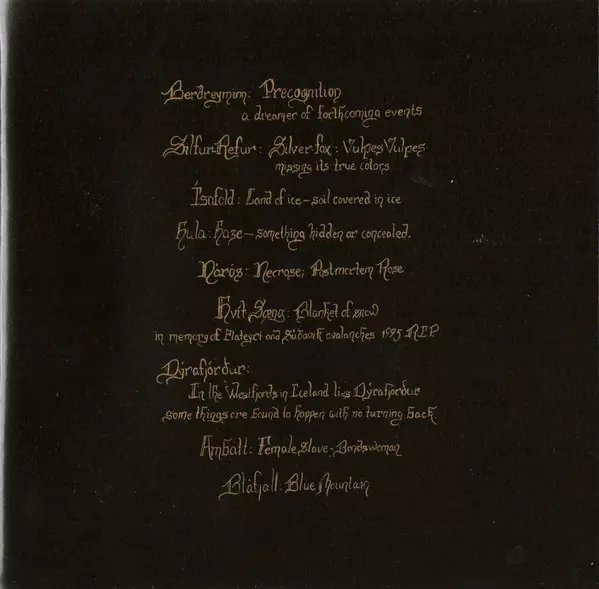 Berdreyminn: Precognition
a dreamer of forthcoming events
Silfur-Refur: Silver-fox: Vulpes Vulpes
missing its true colors
Ísafold: Land of ice – soil covered in ice
Hula: Haze – something hidden or concealed.
Nárós: Necrose; Postmortem Rose
Hvít Sæng: Blanket of snow
in memory of Flateyri and Súðavík avalanches 1995 R.I.P.
Dýrafjörður:
In the Westfjords in Iceland lies Dýrafjörður
some things are bound to happen with no turning back
Ambátt: Female slave – Bondswoman
Bláfjall: Blue Mountain